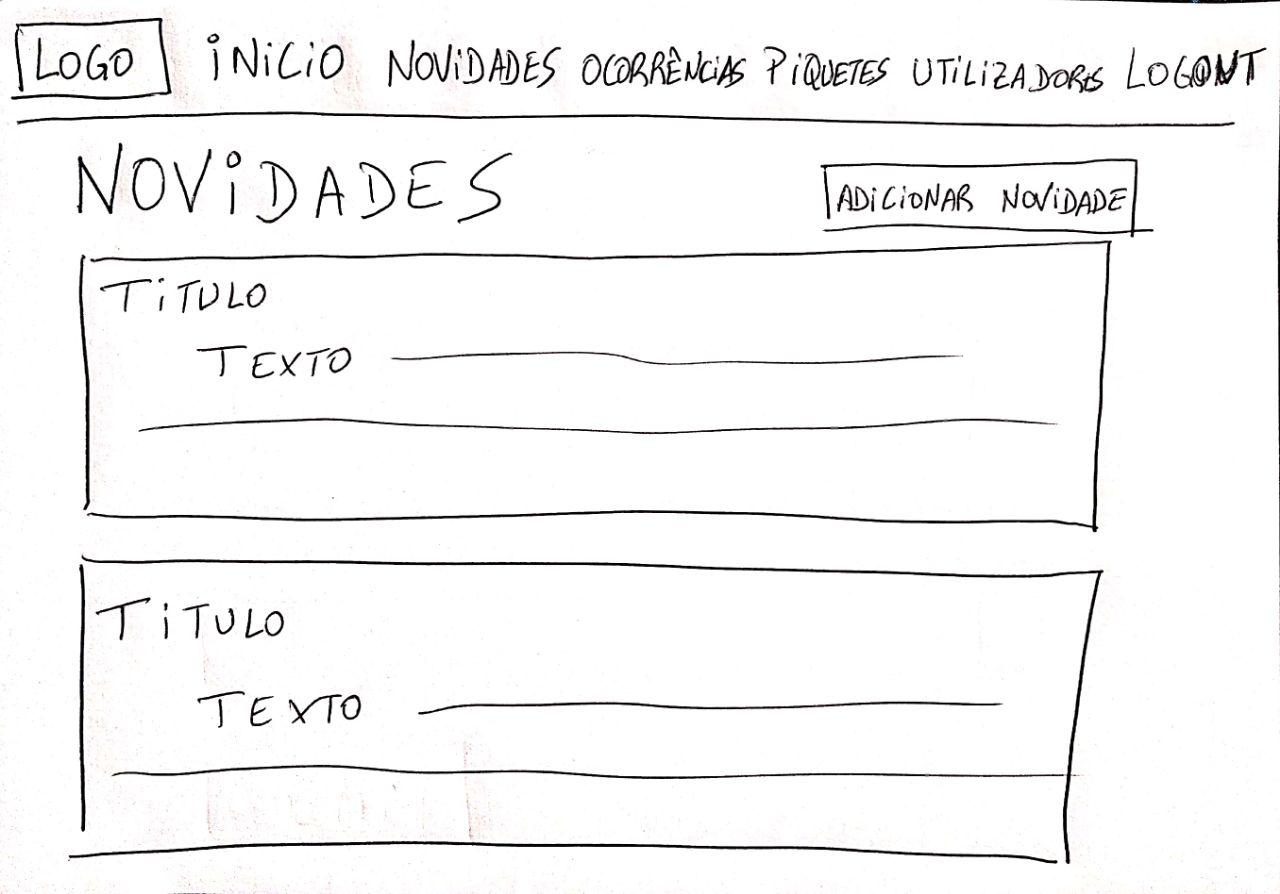 LOGO INICIO NOVIDADES OCORRÊNCIAS PIQUETES UTILIZADORES LOGOUT
NOVIDADES
ADICIONAR NOVIDADE
TITULO
TEXTO
TITULO
TEXTO